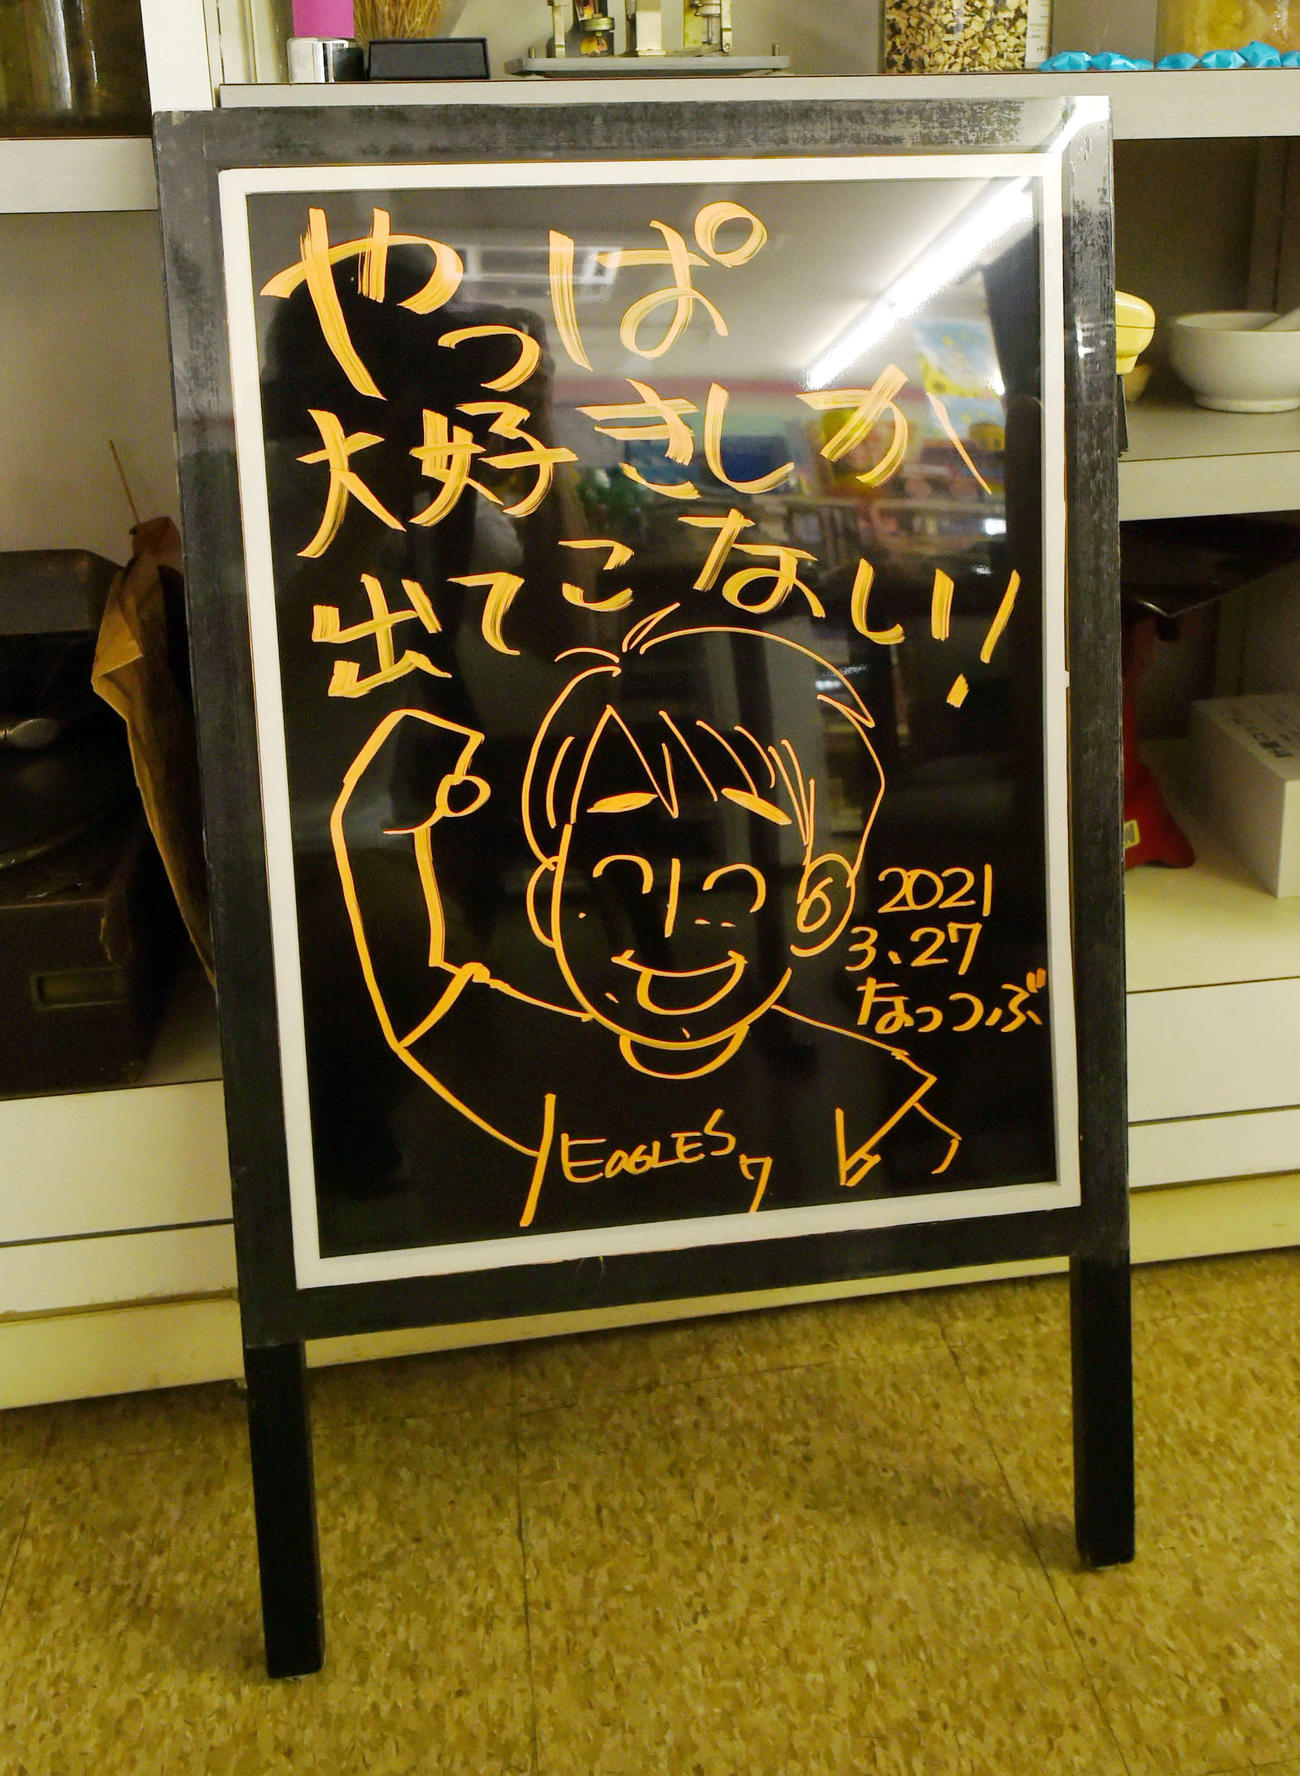 やっぱ
大好きしか
出てこない!
2021
3.27
なっつぶ
EaGLES
7